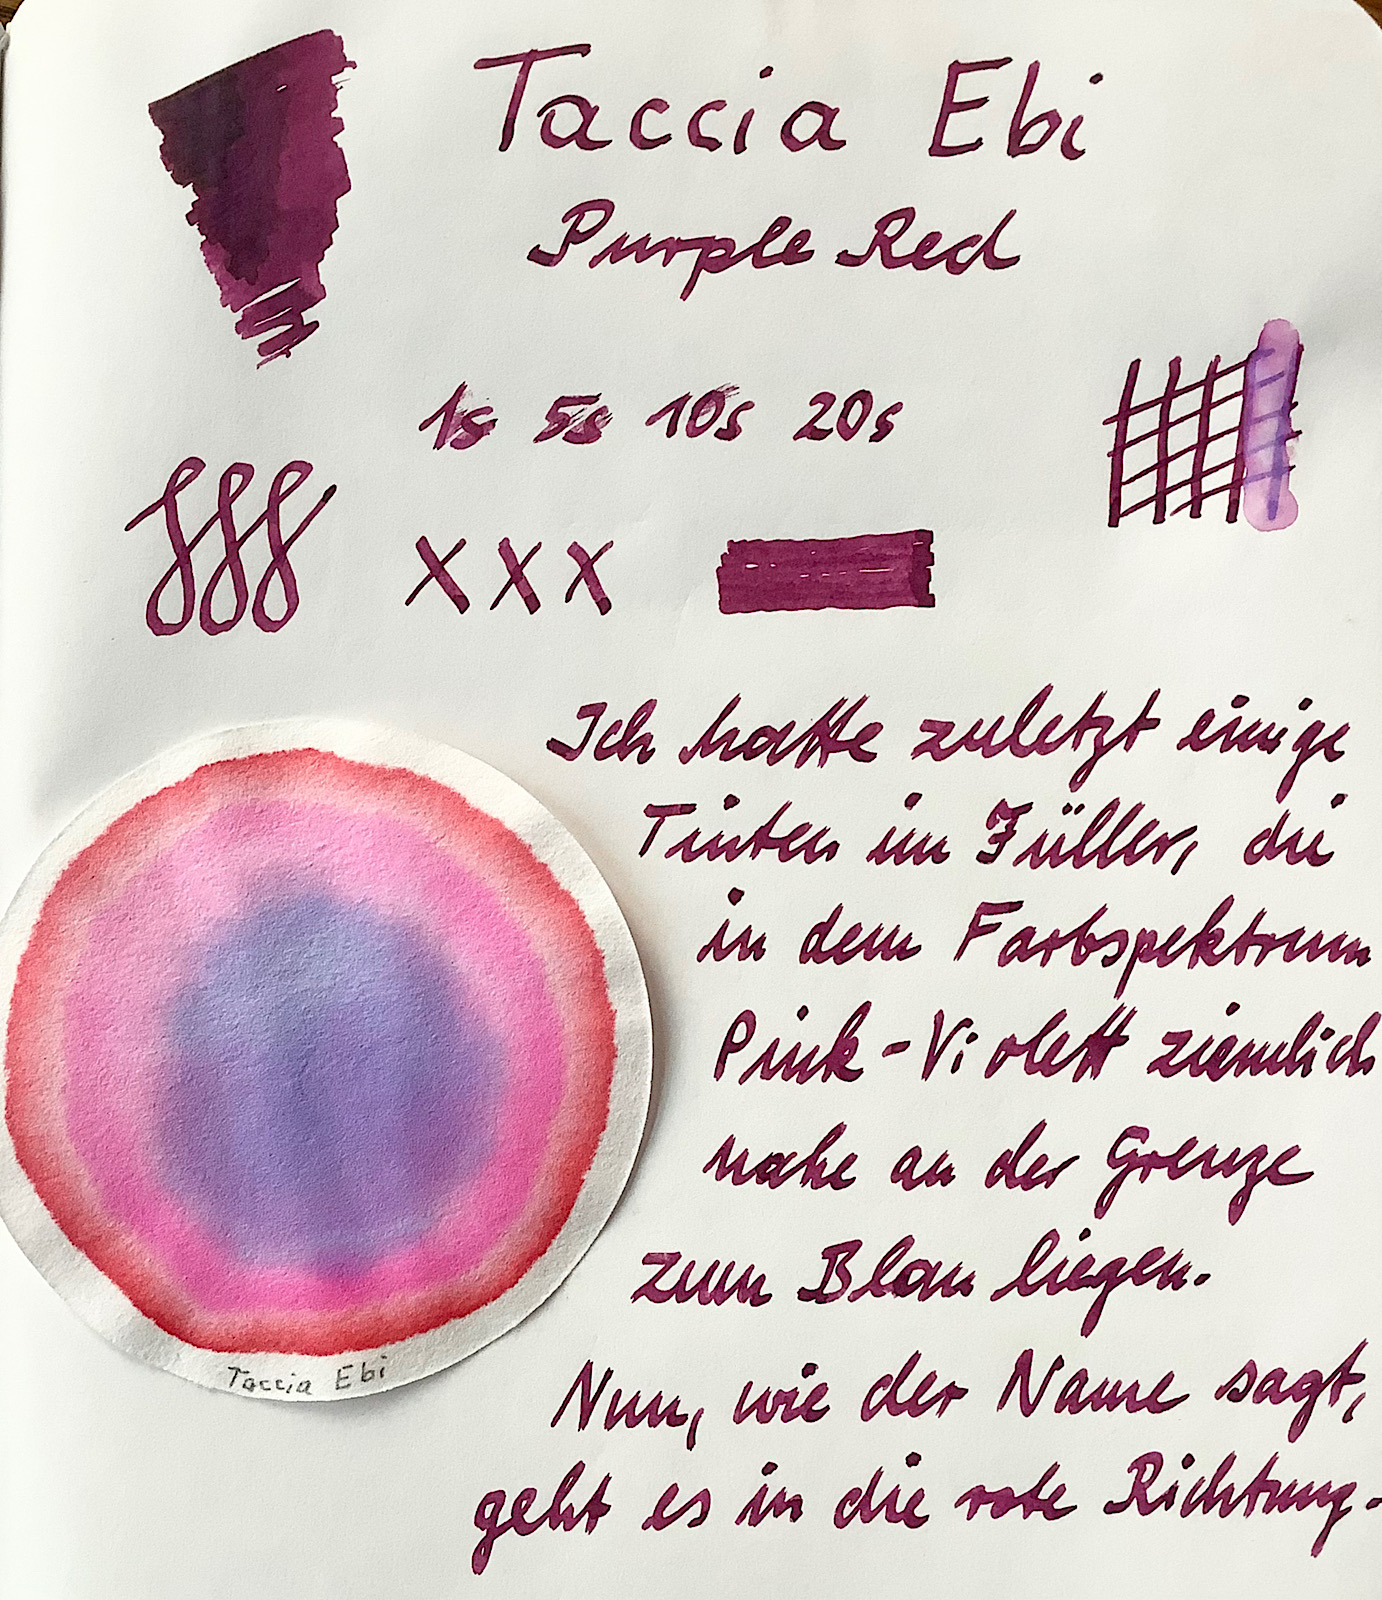 Taccia Ebi
Purple Red
1s 5s 10s 20s
xxx
Ich hatte zuletzt einige
Tinten im Füller, die
in dem Farbspektrum
Pink-Violett ziemlich
nahe an der Grenze
zum Blau liegen.
Nun, wie der Name sagt,
geht es in die rote Richtung.
Taccia Ebi